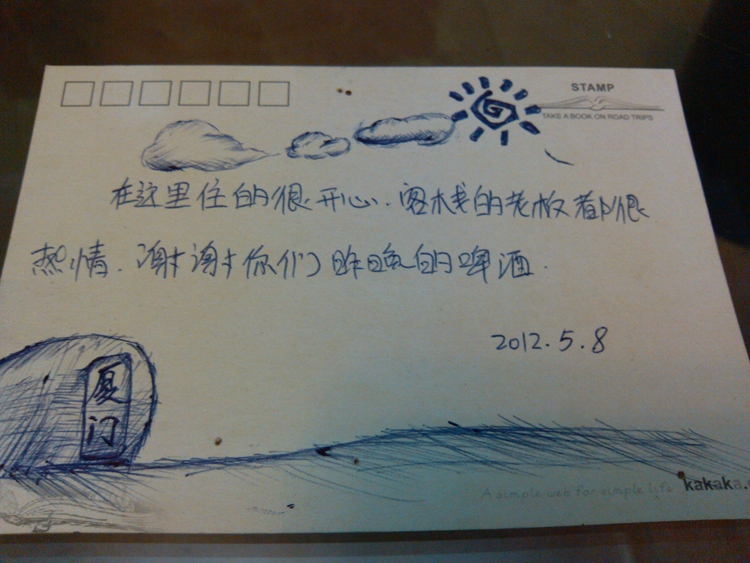 STAMP
TAKE A BOOK ON ROAD TRIPS
在这里住的很开心.客栈的老板都很
热情.谢谢你们昨晚的啤酒.
2012.5.8
厦门
A simple web for simple life
kakaka.